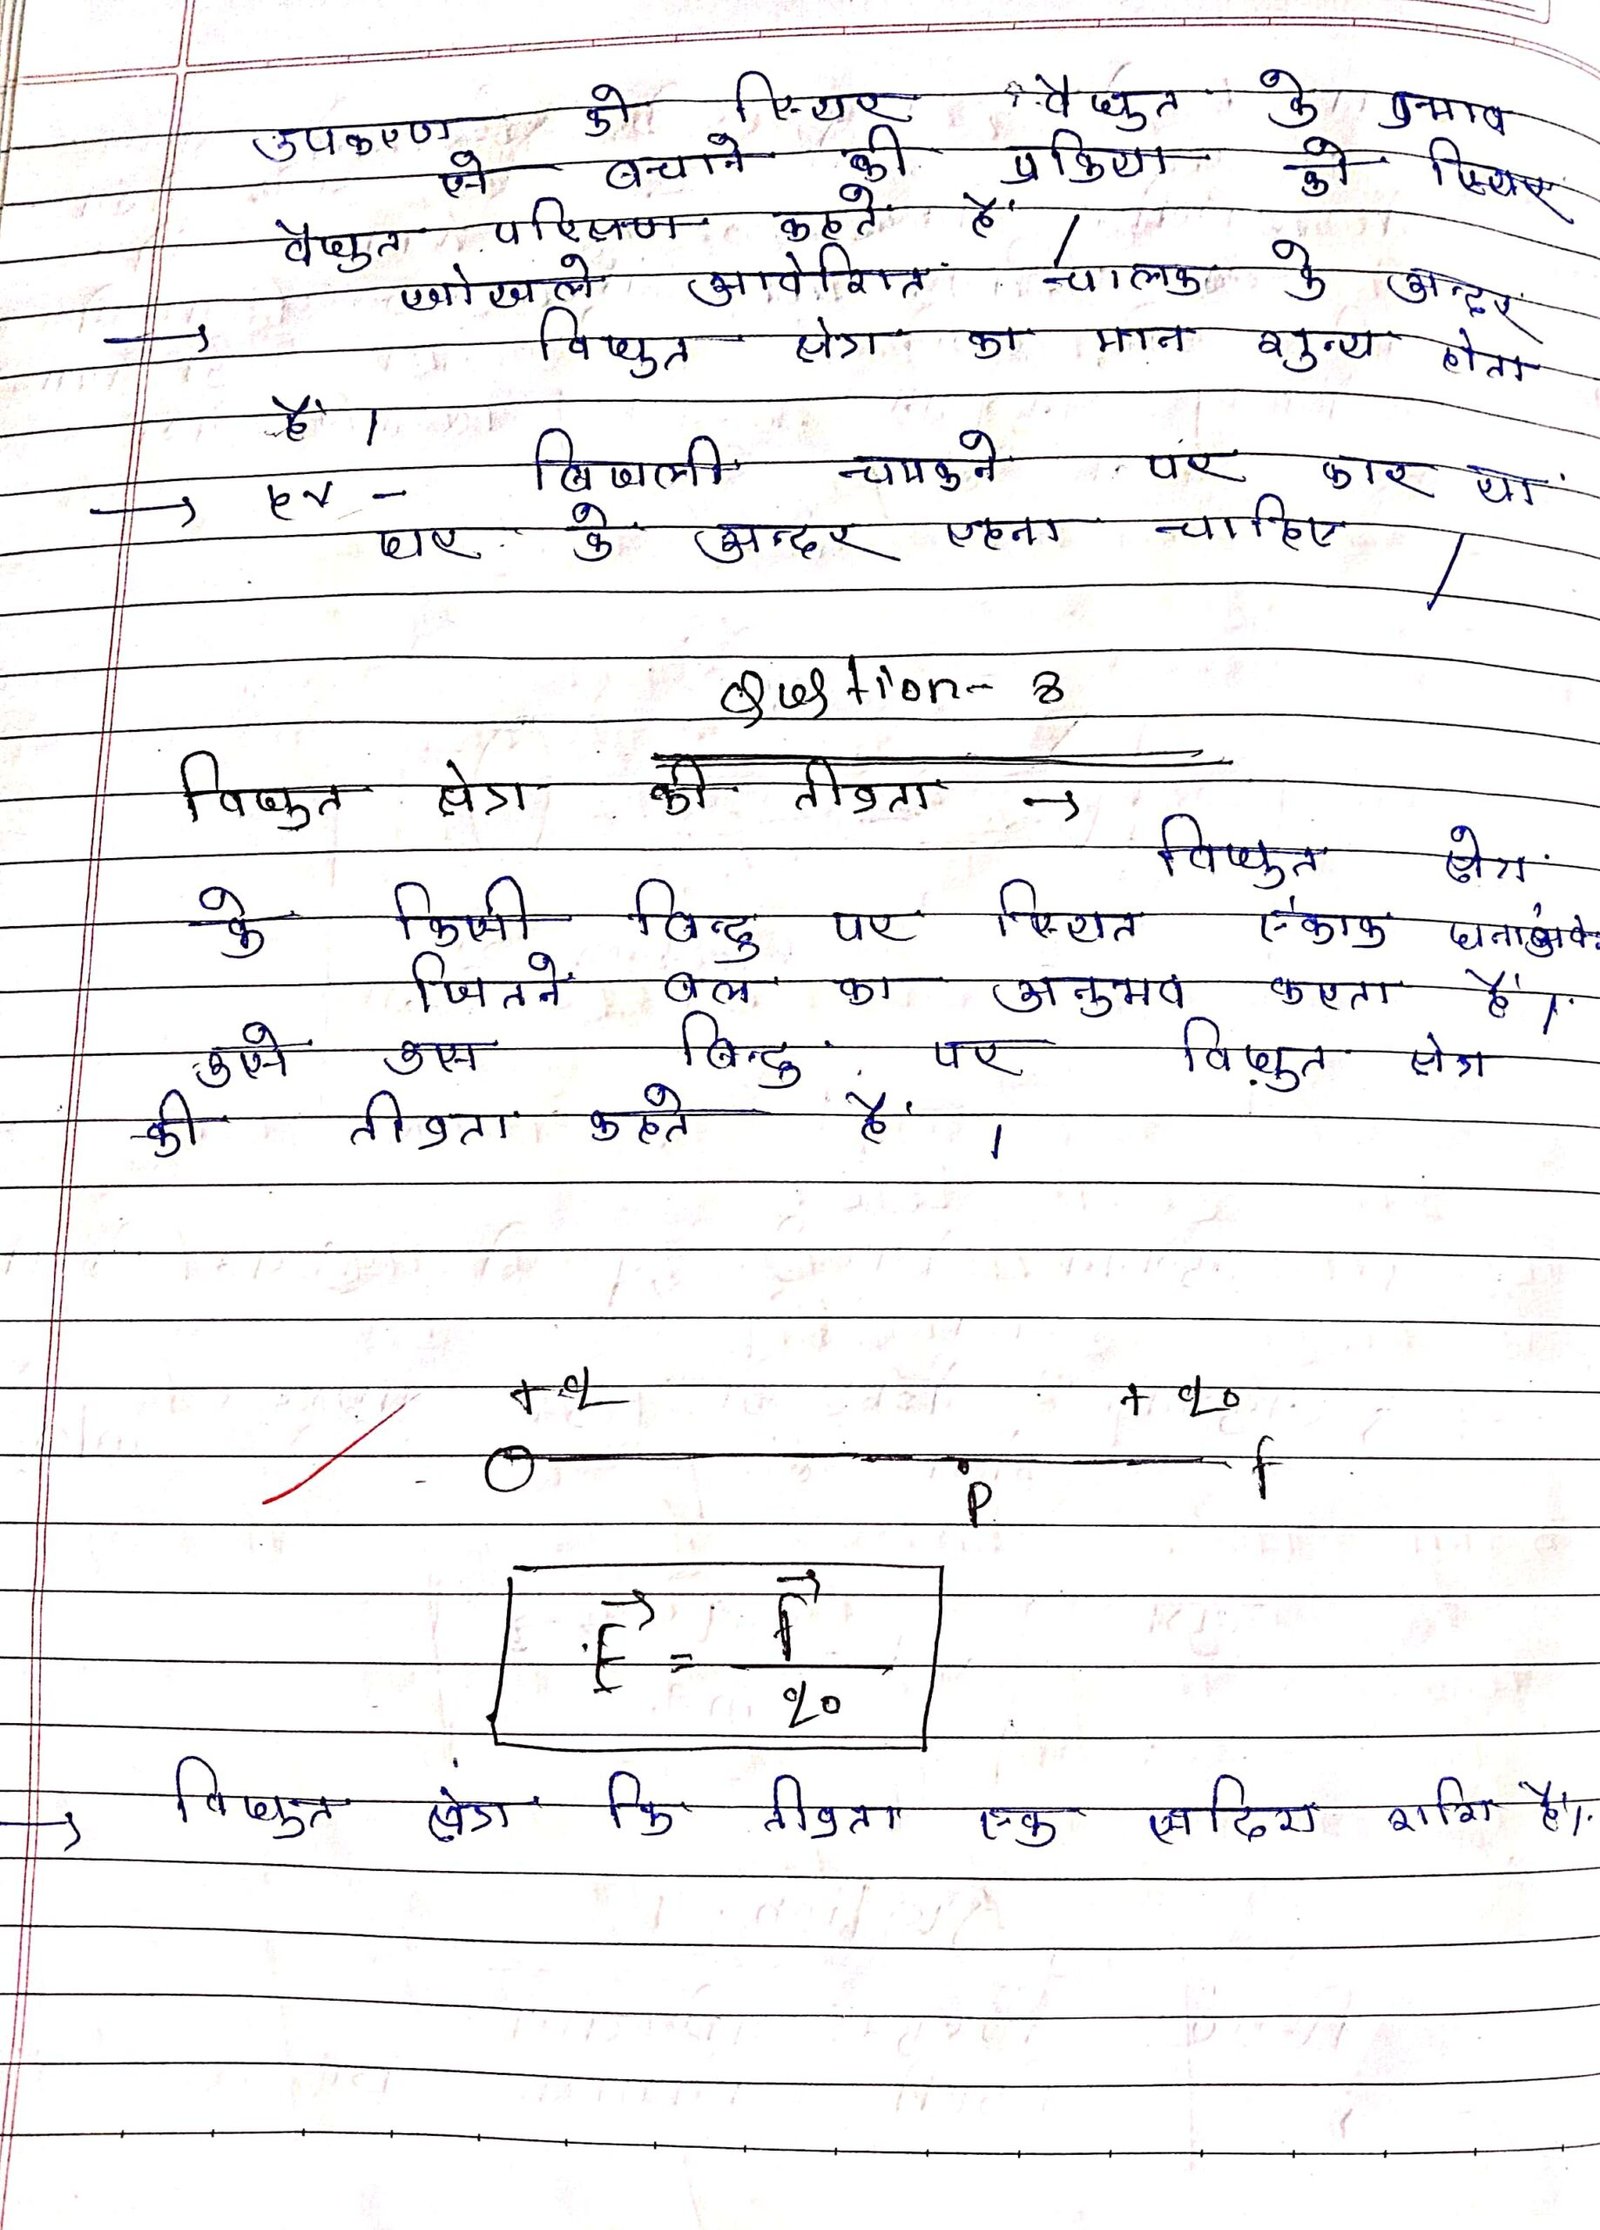 उपकरण को स्थिर वैद्युत के प्रभाव
से बचाने की प्रक्रिया को स्थिर
वैद्युत परिक्षण कहते हैं ।
खोखले आवेशित चालक के अन्दर
→ विद्युत क्षेत्र का मान शुन्य होता
हैं ।
→ बिजली चमकने पर कार या
घर के अन्दर रहना चाहिए ।
Question- 3
विद्युत क्षेत्र की तीव्रता →
विद्युत क्षेत्र
के किसी बिन्दु पर स्थित एंकाक
जितने बल का अनुभव करता हैं ।
उसे उस बिन्दु पर विद्युत क्षेत्र
की तीव्रता कहते हैं ।
+q +q₀
P F
E⃗ = F⃗ / q₀
→ विद्युत क्षेत्र कि तीव्रता एक सदिश राशि हैं ।